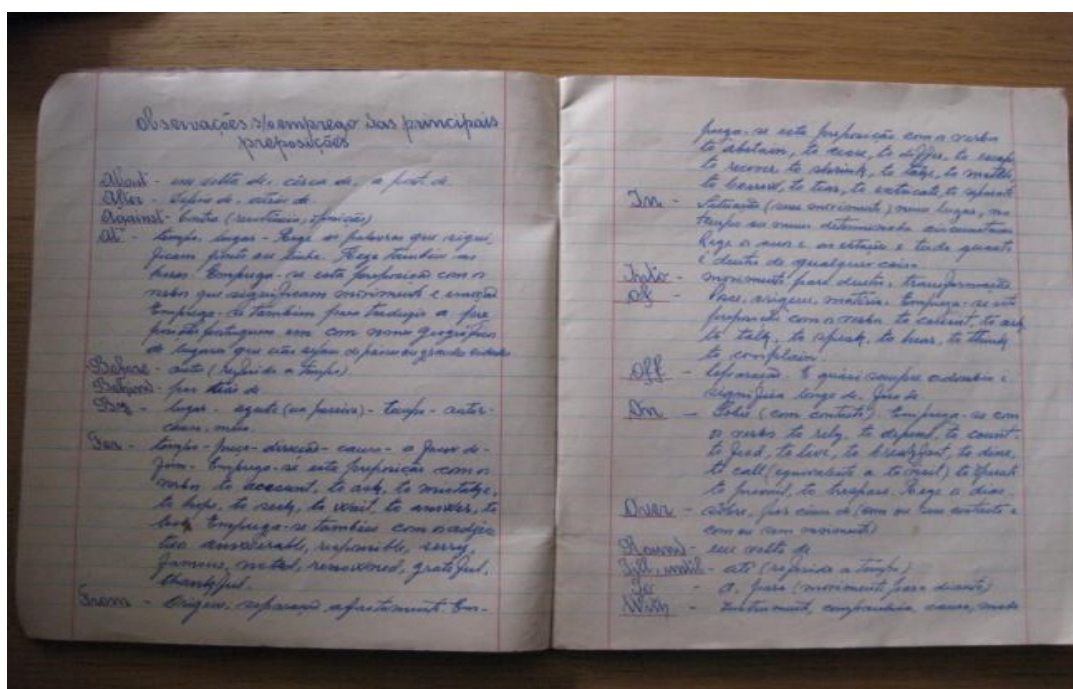 Observações s/o emprego das principais
preposições
About - em volta de, cêrca de, a
After - depois de, atrás de
Against - contra (resistência, oposição)
At - tempo, lugar - Rege as palavras que signi-
ficam ponto ou Rege também as
horas. Emprega-se esta preposição com os
verbos que significam movimento e emoção
Emprega-se também para traduzir a pre
posição portuguesa em com nomes geográficos
de lugares que não sejam de países ou grandes cidades
Before - ante (referido a tempo)
Behind - por trás de
By - lugar - agente (na passiva) - tempo - autor-
causa, meio
For - tempo - preço - direcção - causa - a favor de -
fim - Emprega-se esta preposição com os
verbos to account, to ask, to mistake,
to hope, to seek, to wait, to answer, to
look Emprega-se também com os adjec
tivos answerable, responsible, sorry,
famous, noted, renowned, grateful,
thankful.
From - Origem, separação afastamento. Em-
prega-se esta preposição com os verbos
to abstain, to cease, to differ, to escape,
to recover to shrink, to take,
to borrow, to to extricate, to separate
In - Situação (sem movimento) num lugar, no
tempo ou numa determinada circunstância
Rege os anos e as estações e tudo quanto
é dentro de qualquer coisa.
Into - movimento para dentro, transformação
Of - Posse, origem, matéria. Emprega-se esta
preposição com os verbos to to ask
to talk, to speak, to hear, to think
to complain.
Off - Separação. É quási sempre advérbio e
significa longe de, fora de
On - Sobre (com contacto). Emprega-se com
os verbos to rely, to depend, to count.
to feed, to live, to breakfast, to dine,
to call (equivalente a to visit) to
to to trespass. Rege os dias.
Over - sôbre, por cima de (com ou sem contacto e
com ou sem movimento)
Round - em volta de
Till, until - até (referido a tempo)
To - a, para (movimento para diante)
With - Instrumento, companhia causa, modo